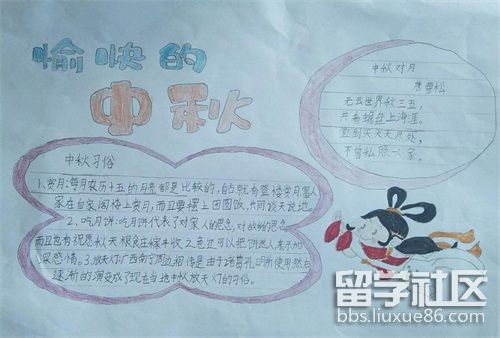 愉快的
中秋
中秋对月
唐 曹松
无云世界秋三五，
共看蟾盘上海涯。
直到天头天尽处，
不曾私照一人家。
中秋习俗
1、赏月：每月农历十五的月亮都是比较的，自就有登楼赏月富人
家在自家阁楼上赏月，而且要摆上团圆饭，共同谈天说地。
2、吃月饼：吃月饼代表了对家人的思念，对故的思念
而且包有祝愿秋天粮食庄稼丰收
深感情。3、放天灯广西南宁周边相传是由于诸葛孔明所使用然后
逐渐的演变成了现在当地中秋放天灯的习俗。
留学社区
bbs.liuxue86.com